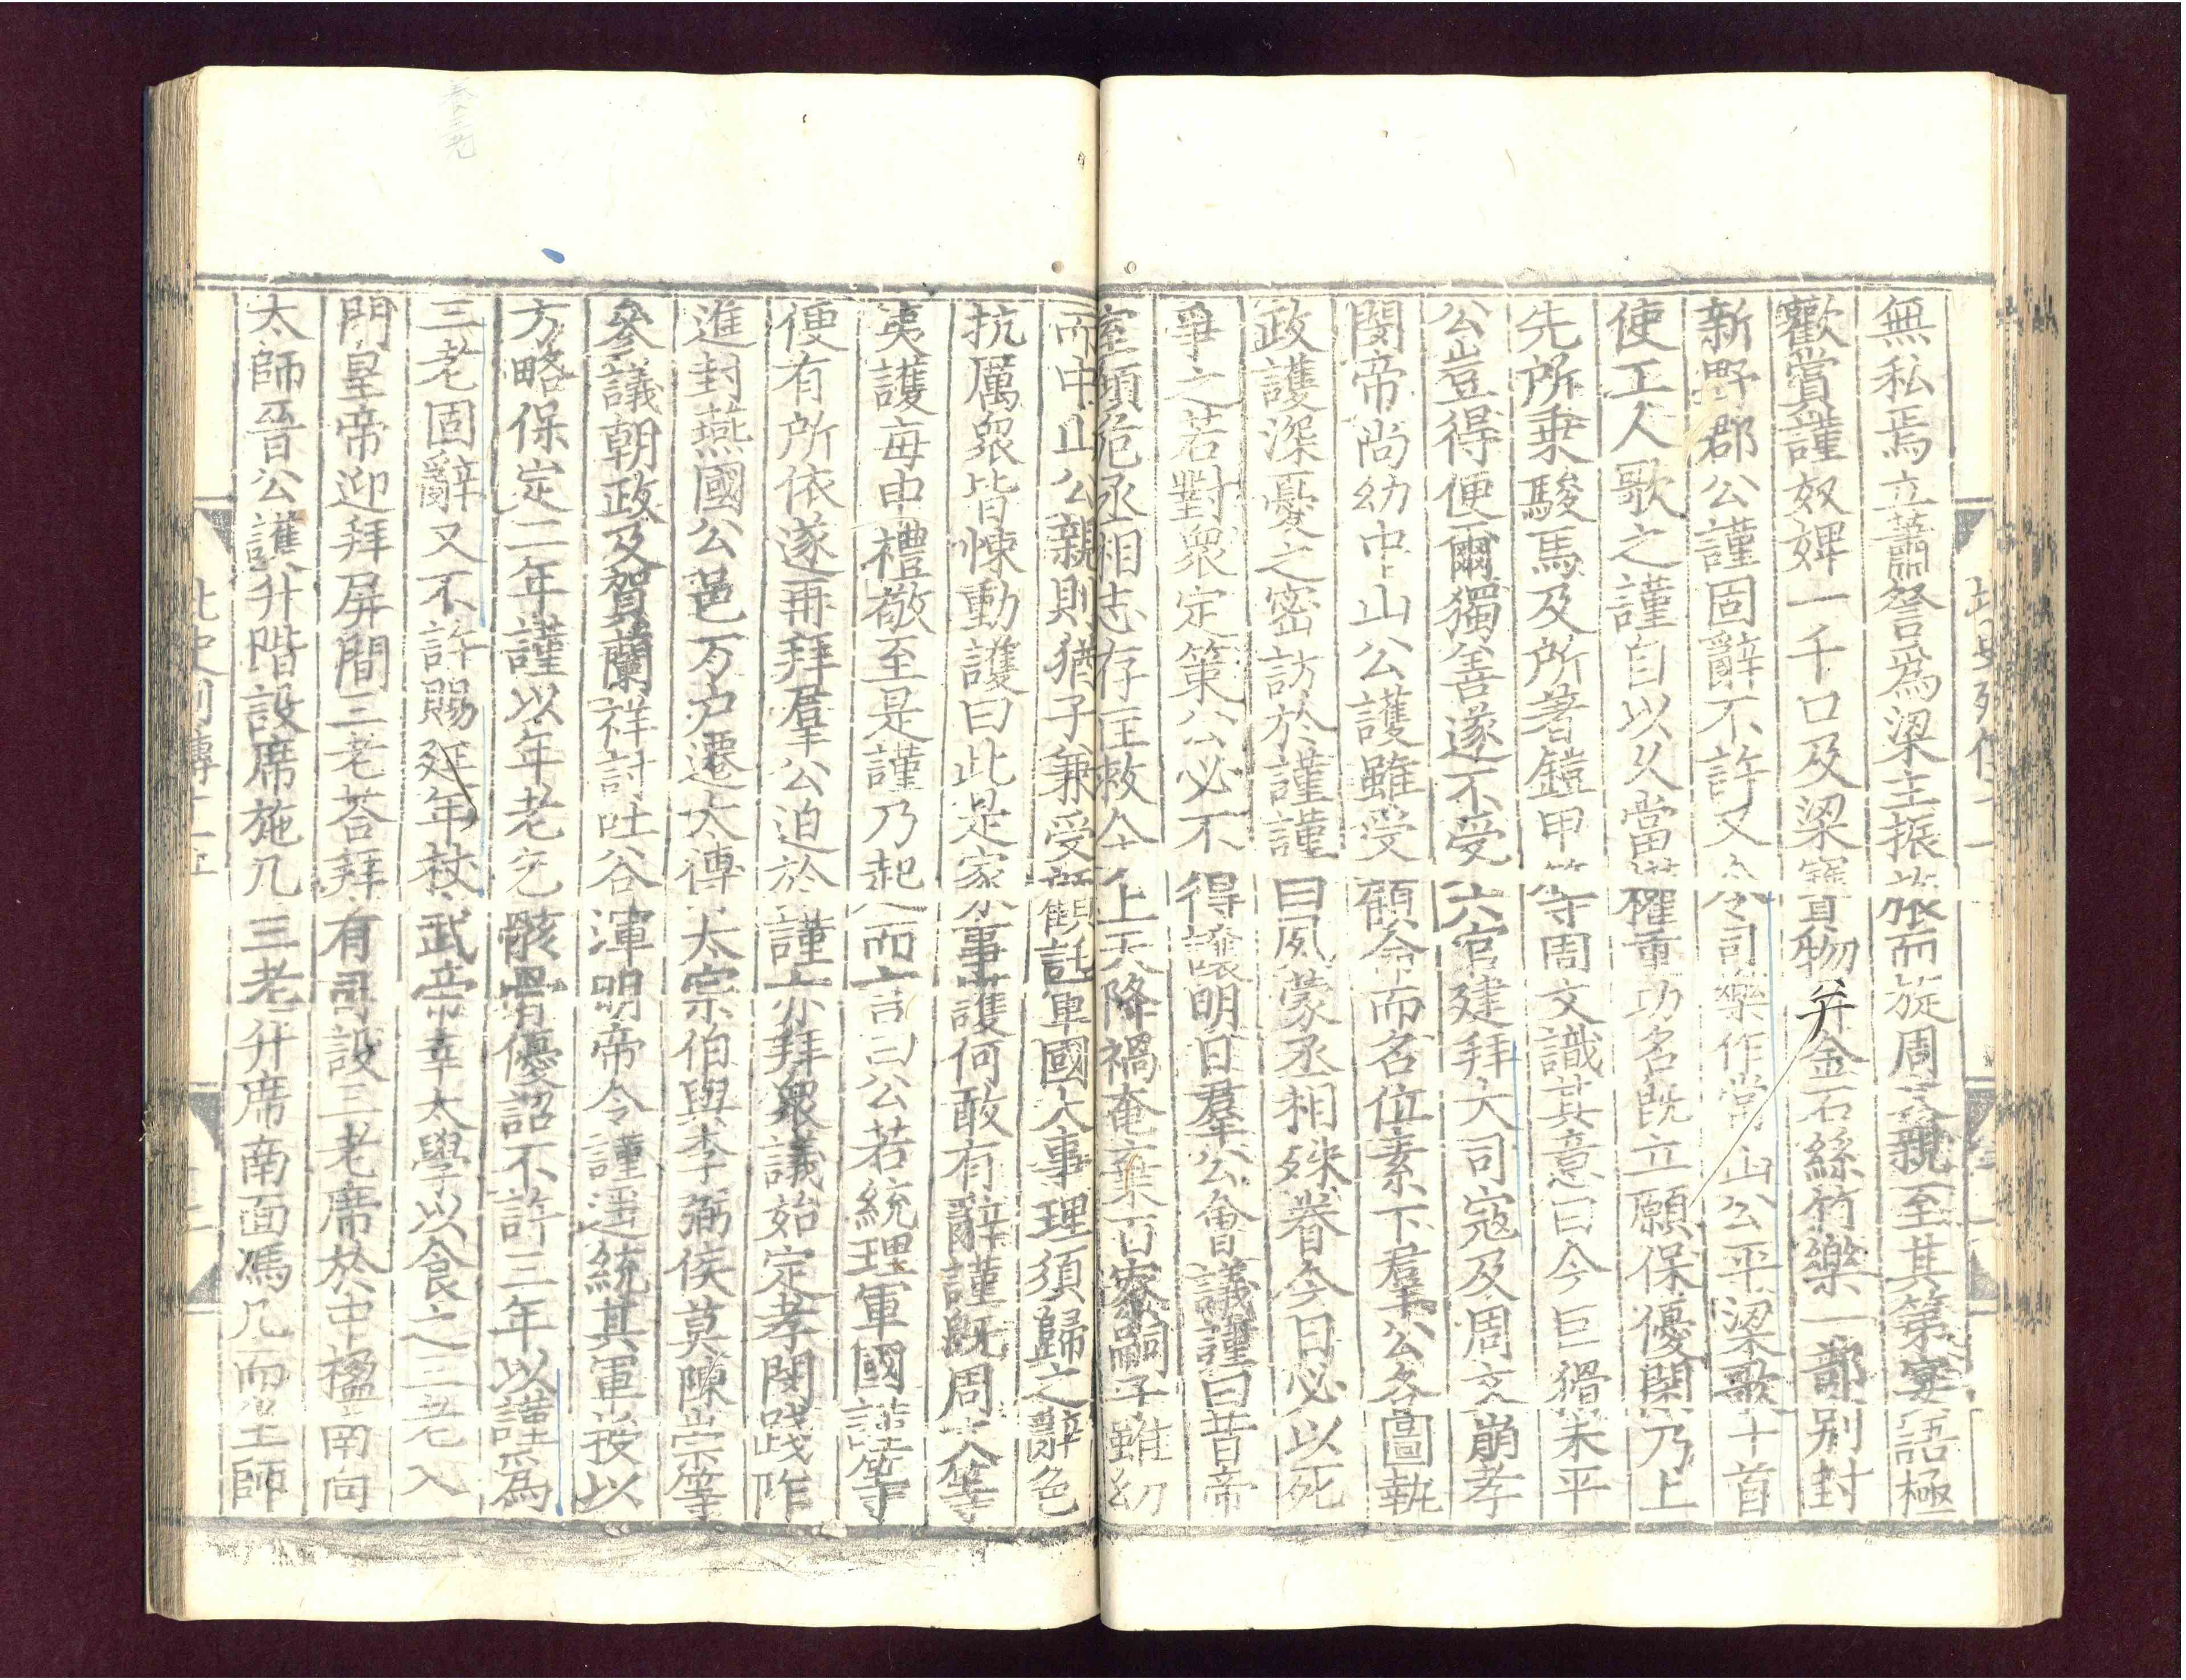 無私焉立蕭詧爲梁主振旅而旋周文親至其第宴語極
歡賞謹奴婢一千口及梁寶物并金石絲竹樂一部别封
新野郡公謹固辭不許又令司樂作常山公平梁歌十首
使工人歌之謹自以久當權重功名既立願保優閑乃上
先所乗駿馬及所著鎧甲等周文識其意曰今巨猾未平
公豈得便爾獨善遂不受六官建拜大司寇及周文崩孝
閔帝尚幼中山公護雖受顧命而名位素下羣公各圖執
政護深憂之密訪於謹謹曰夙蒙丞相殊眷今日必以死
爭之若對衆定策公必不得讓明日羣公會議謹曰昔帝
室傾危丞相志存匡救今上天降禍奄棄百寮嗣子雖幼
而中山公親則猶子兼受顧託軍國大事理須歸之辭色
抗厲衆皆悚動護曰此是家事護何敢有辭謹既周文等
夷護每申禮敬至是謹乃起而言曰公若統理軍國謹等
便有所依遂再拜羣公迫於謹亦拜衆議始定孝閔踐阼
進封燕國公邑万户遷太傅太宗伯與李弼侯莫陳崇等
參議朝政及賀蘭祥討吐谷渾明帝令謹遥統其軍授以
方略保定二年謹以年老乞骸骨優詔不許三年以謹爲
三老固辭又不許賜延年杖武帝幸太學以食之三老入
門皇帝迎拜屏間三老荅拜有司設三老席於中楹南向
太師晉公護升階設席施几三老升席南面馮几而坐師
北史列傳十一